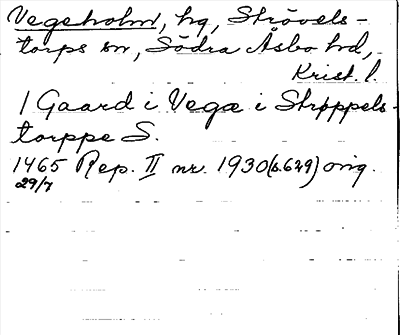 Vegeholm, hg, Strövels-
torps sn, Södra Åsbo hd,
Krist. l.
1 Gaard i Vegæ i Strøppels-
torppe S.
1465 Rep. II nr. 1930 (s. 629) orig.
29/7